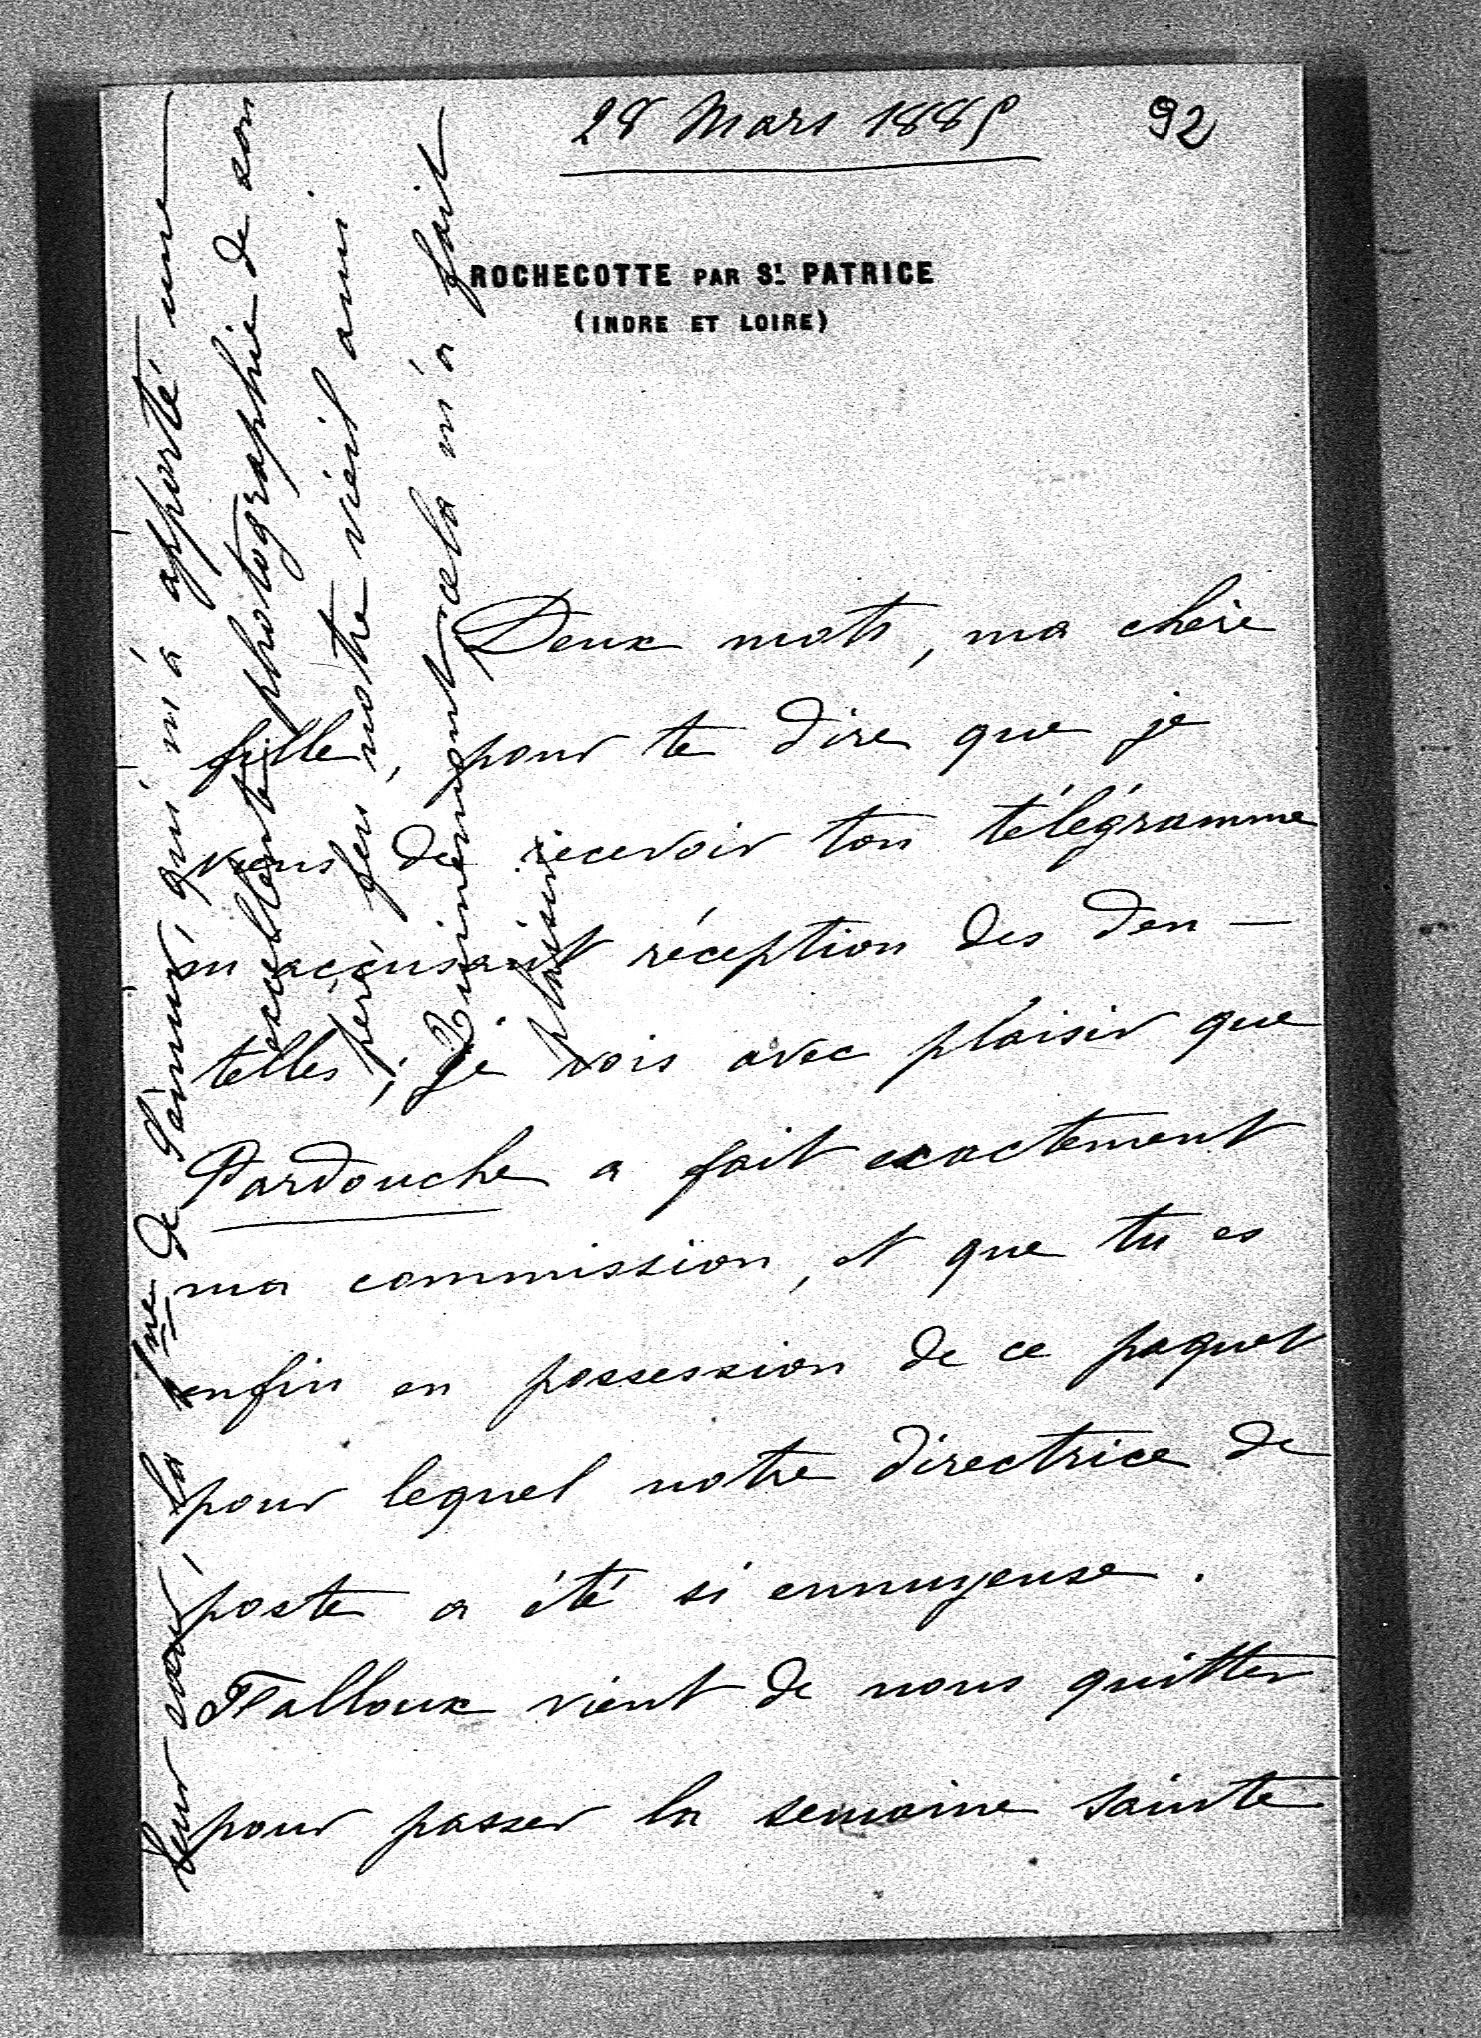 28 Mars 1885
92
ROCHECOTTE PAR St. PATRICE
(INDRE ET LOIRE)
Deux mots, ma chère
fille, pour te dire que je
viens de recevoir ton télégramme
m'accusant réception des den-
telles ; je vois avec plaisir que
Pardouche a fait exactement
ma commission, et que tu es
enfin en possession de ce paquet
pour lequel notre directrice de
poste a été si ennuyeuse.
Falloux vient de nous quitter
pour passer la semaine sainte
leur sœur, la Pne de qui m'a apporté une
excellente photographie de son
père, feu notre vieil ami
cela m'a fait
plaisir